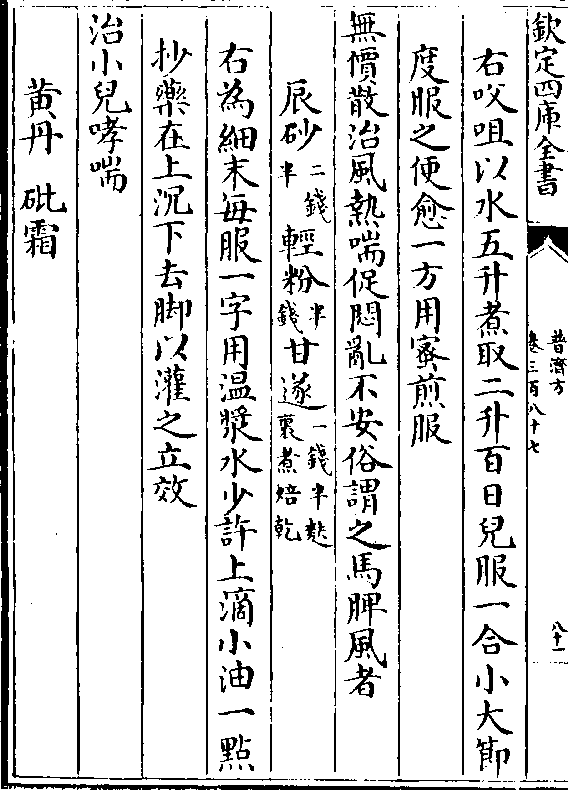 欽定四庫全書
普濟方
卷三百八十七
八十一
右㕮咀以水五升煮取二升百日兒服一合小大節
度服之便愈一方用蜜煎服
無價散治風熱喘促悶亂不安俗謂之馬脾風者
辰砂二錢半 輕粉半錢 甘遂一錢半麩裹煮焙乾
右為細末每服一字用温漿水少許上滴小油一點
抄藥在上沉下去脚以灌之立效
治小兒哮喘
黄丹 砒霜